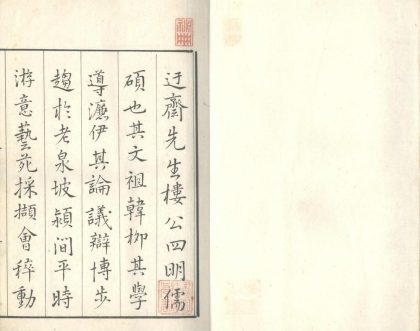 迂齋先生樓公四明儒
碩也其文祖韓柳其學
導濂伊其論議辯博步
趨於老泉坡潁㵎平時
游意藝苑採擷會稡動